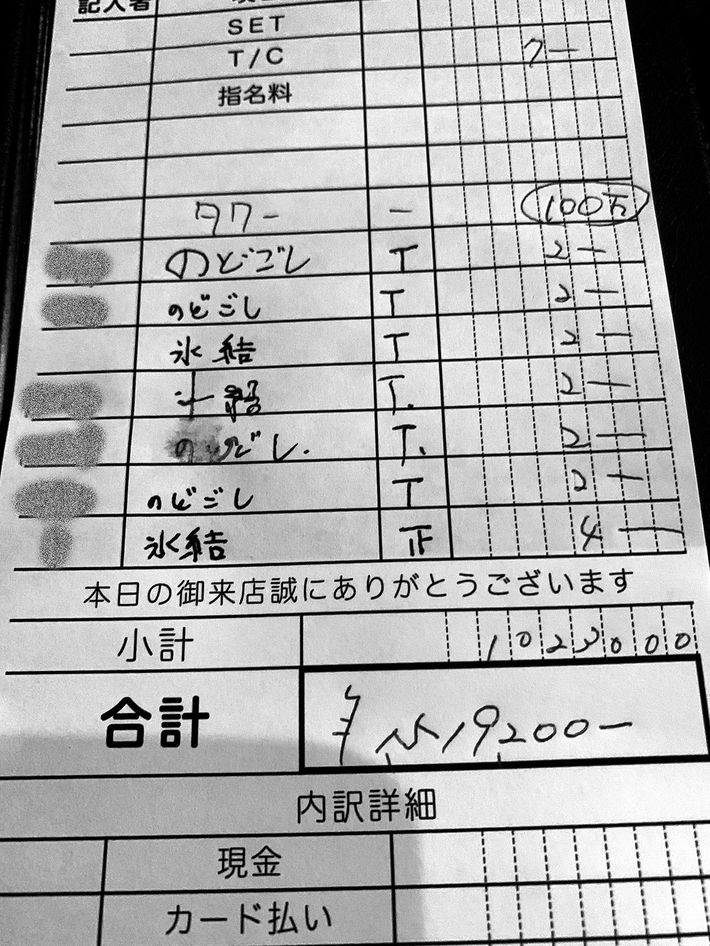 記入者
SET
T/C 7ー
指名料
タワー ー 100万
のどごし T 2ー
のどごし T 2ー
氷結 T 2ー
T. 2ー
のどごし. T. 2ー
のどごし T 2ー
氷結 正 4ー
本日の御来店誠にありがとうございます
小計 1023000
合計 19200ー
内訳詳細
現金
カード払い